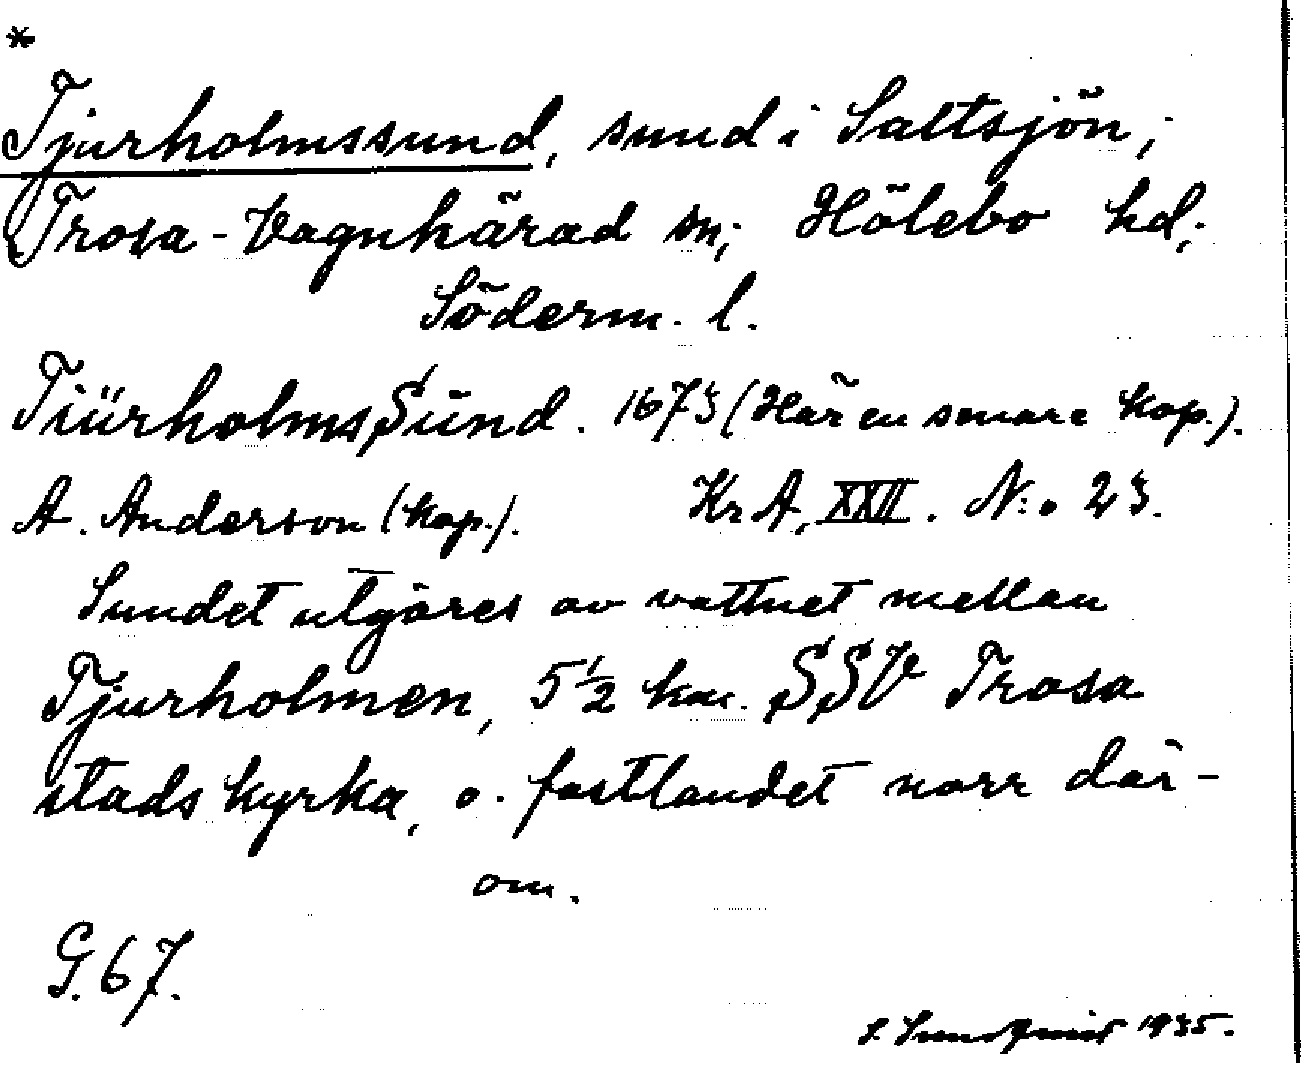 *
Tjurholmssund, sund i Saltsjön,
Trosa-Vagnhärad sn; Hölebo hd;
Söderm. l.
TiürholmsSünd. 1673 (Här en senare kop.).
A. Anderson (kop.). KrA, XXII. N:o 23.
Sundet utgöres av vattnet mellan
Tjurholmen, 5 1/2 km. SSV Trosa
stads kyrka, o. fastlandet norr där-
om.
G. 67.
S. Sundqvist 1935.